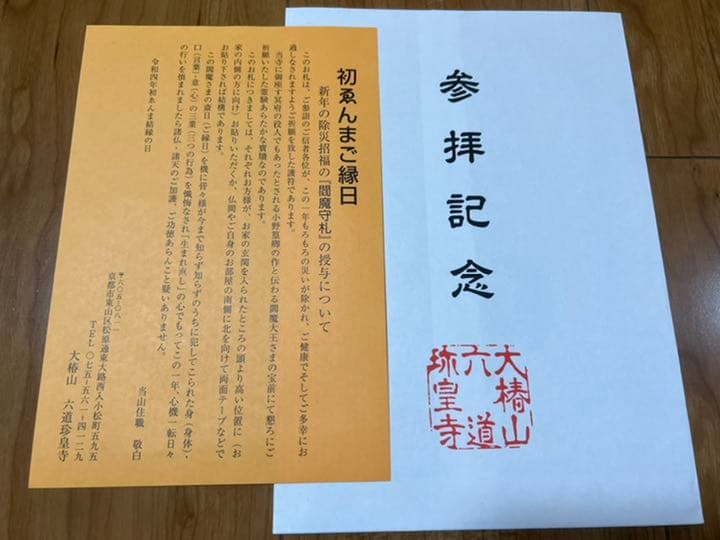 参拝記念
大椿山
六道
珍皇寺
初ゑんまご縁日
新年の除災招福の『閻魔守札』の授与について
このお札は、ご参詣のご信者各位が、この一年もろもろの災いが除かれ、ご健康でそしてご多幸にお
過しなされますようご祈願を致した護符であります。
当寺に御座す冥府の役人でもあったとされる小野篁卿の作と伝わる閻魔大王さまの宝前にて懇ろにご
祈願いたした霊験あらたかな寶牘なのであります。
このお札につきましては、それぞれお方様が、お家の玄関を入られたところの頭より高い位置に(お
家の内側の方に向け)お貼りいただくか、仏間やご自身のお部屋の南側に北を向けて両面テープなどで
お貼り下されば結構であります。
この閻魔さまの斎日(ご縁日)を機に皆々様が今まで知らず知らずのうちに犯してこられた身(身体)・
口(言葉)・意(心)の三業(三つの行為)を懺悔なされ「生まれ直し」の心でもってこの一年、心機一転日々
の行いを慎まれましたら諸仏・諸天のご加護、ご功徳あらんこと疑いありません。
令和四年初ゑんま結縁の日
当山住職 敬白
〒六〇五-〇八一一
京都市東山区松原通東大路西入小松町五九五
TEL 〇七五-五六一-四一二九
大椿山 六道珍皇寺